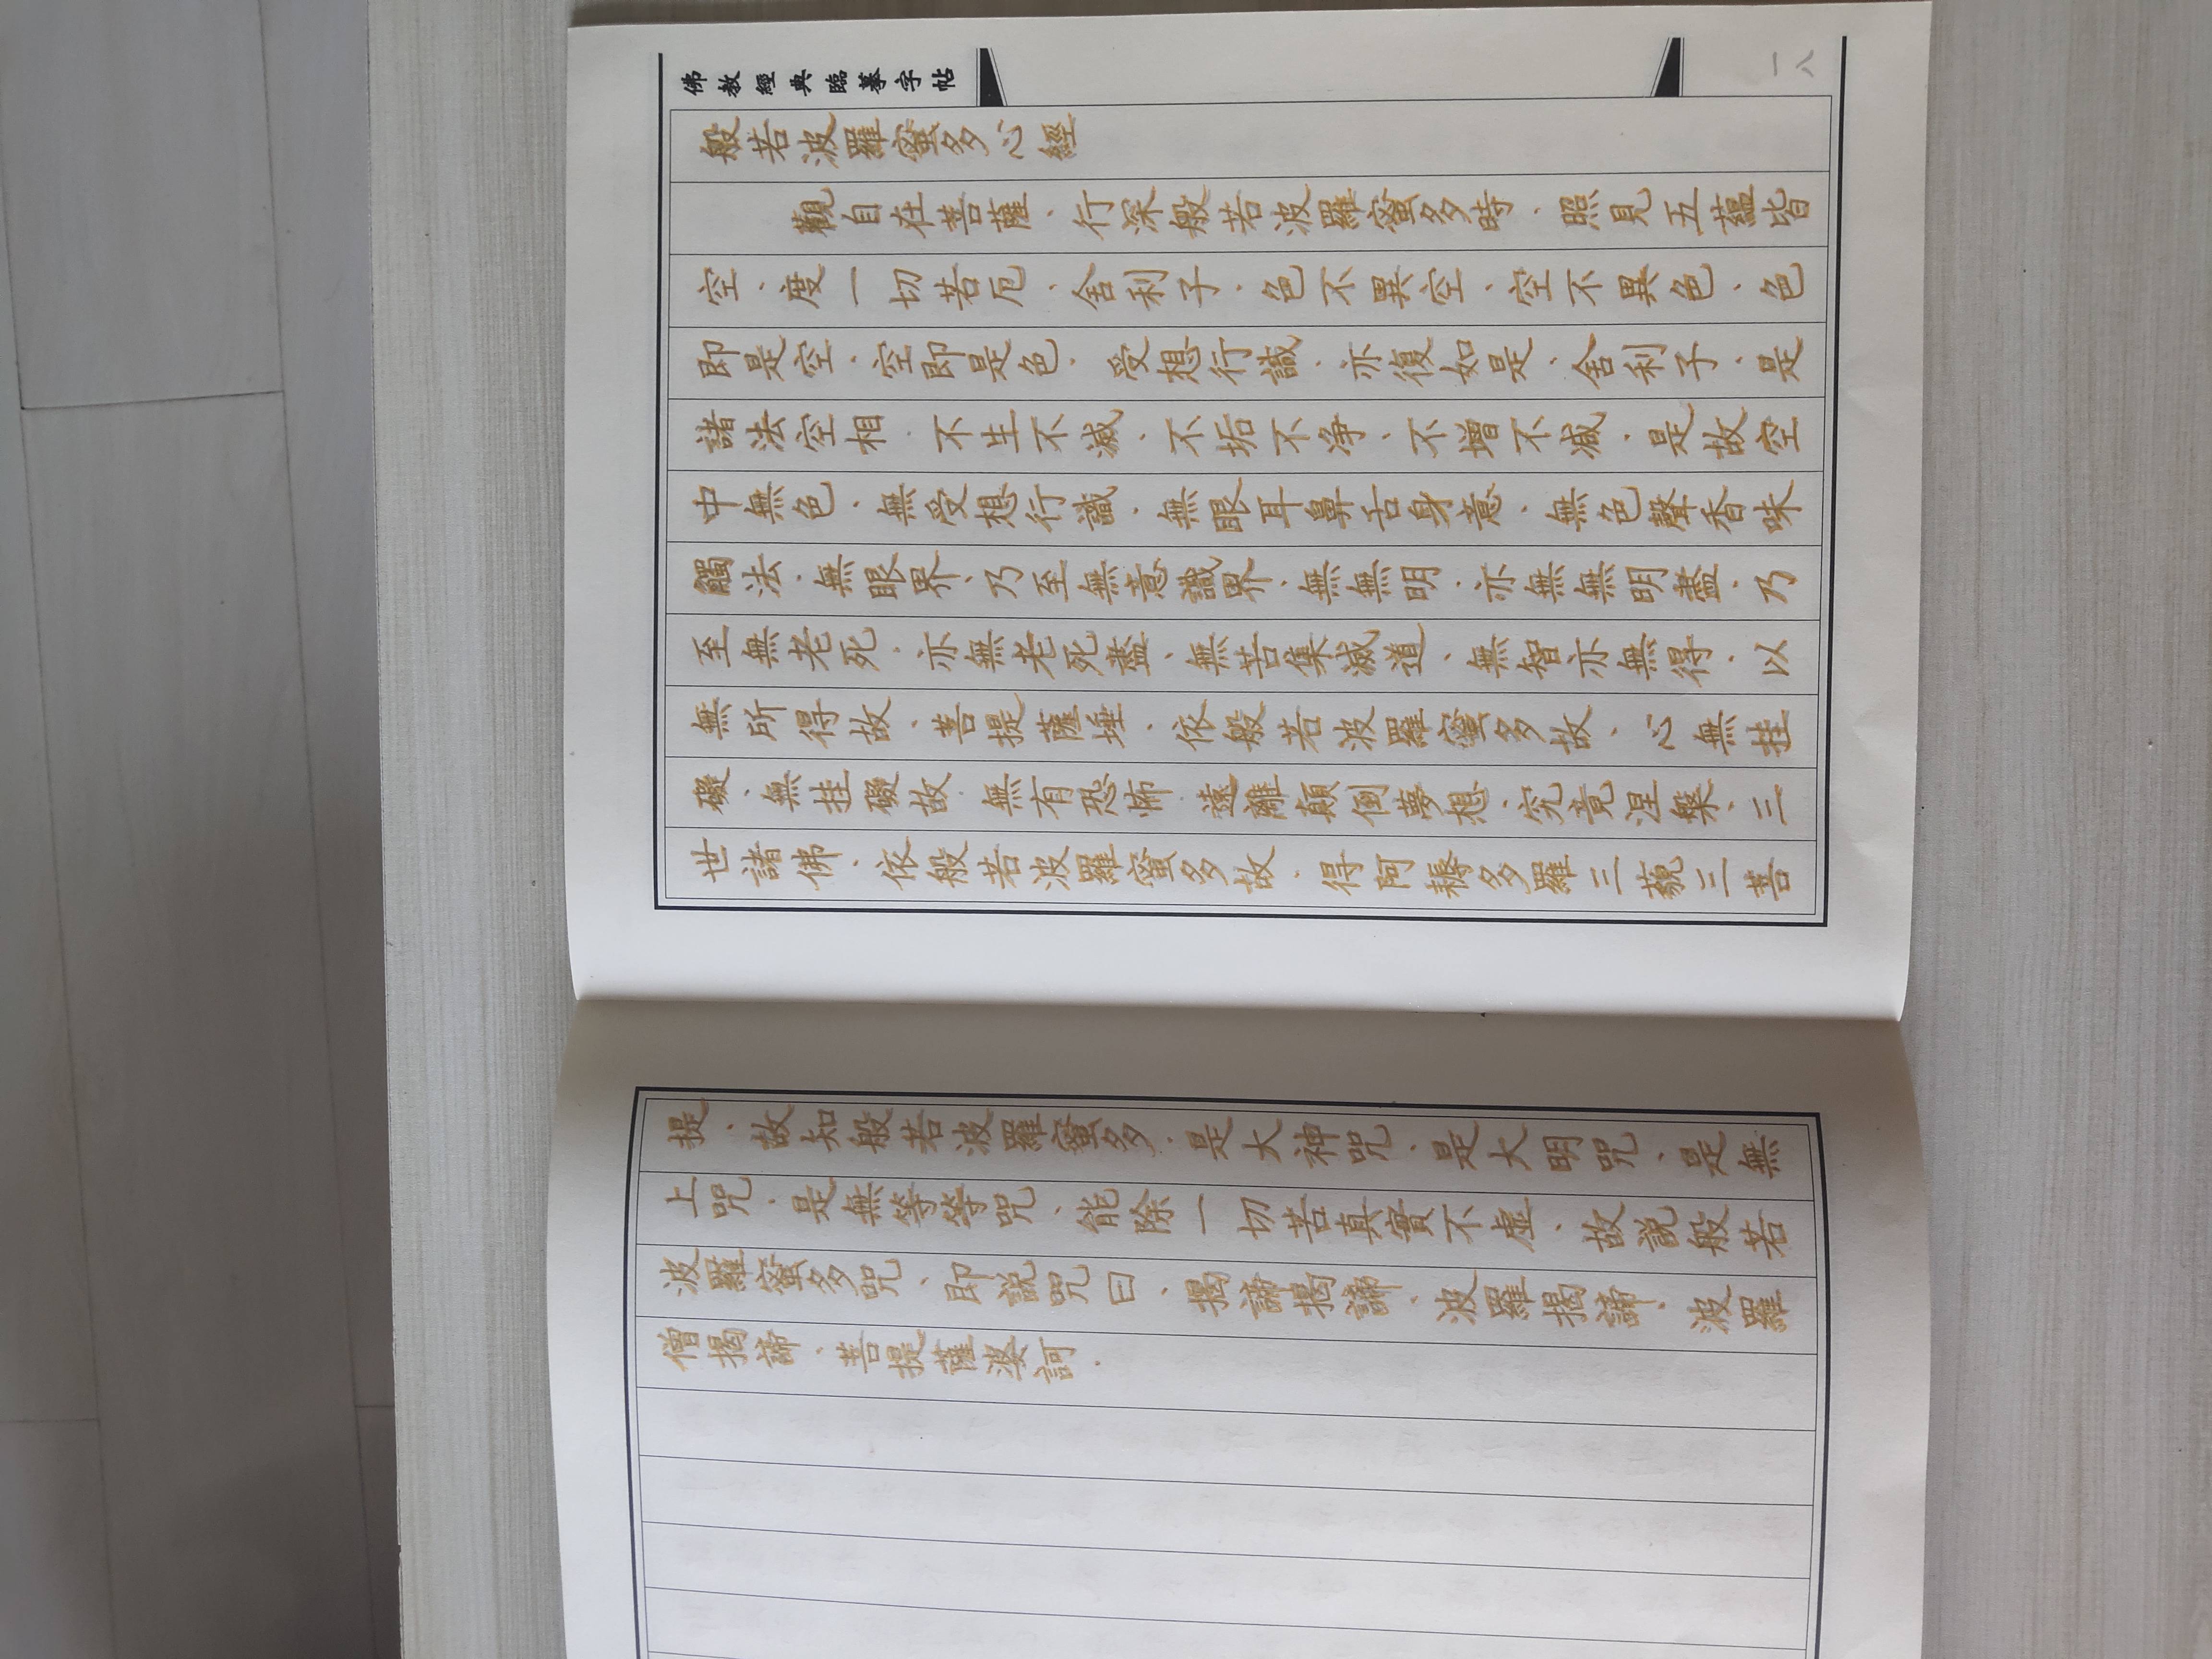 佛教經典臨摹字帖
一八
般若波羅蜜多心經
觀自在菩薩、行深般若波羅蜜多時、照見五蘊皆
空、度一切苦厄、舍利子、色不異空、空不異色、色
即是空、空即是色、受想行識、亦復如是、舍利子、是
諸法空相、不生不滅、不垢不淨、不增不減、是故空
中無色、無受想行識、無眼耳鼻舌身意、無色聲香味
觸法、無眼界、乃至無意識界、無無明、亦無無明盡、乃
至無老死、亦無老死盡、無苦集滅道、無智亦無得、以
無所得故、菩提薩埵、依般若波羅蜜多故、心無挂
礙、無挂礙故、無有恐怖、遠離顛倒夢想、究竟涅槃、三
世諸佛、依般若波羅蜜多故、得阿耨多羅三藐三菩
提、故知般若波羅蜜多、是大神咒、是大明咒、是無
上咒、是無等等咒、能除一切苦真實不虛、故説般若
波羅蜜多咒、即説咒曰、揭諦揭諦、波羅揭諦、波羅
僧揭諦、菩提薩婆訶、